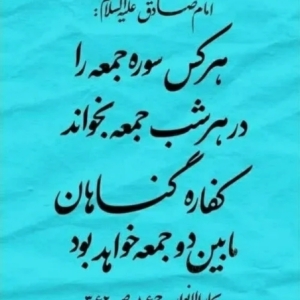 امام صادق علیه‌السلام:
هرکس سوره جمعه را
در هر شب جمعه بخواند
کفاره گناهان
مابین دو جمعه خواهد بود